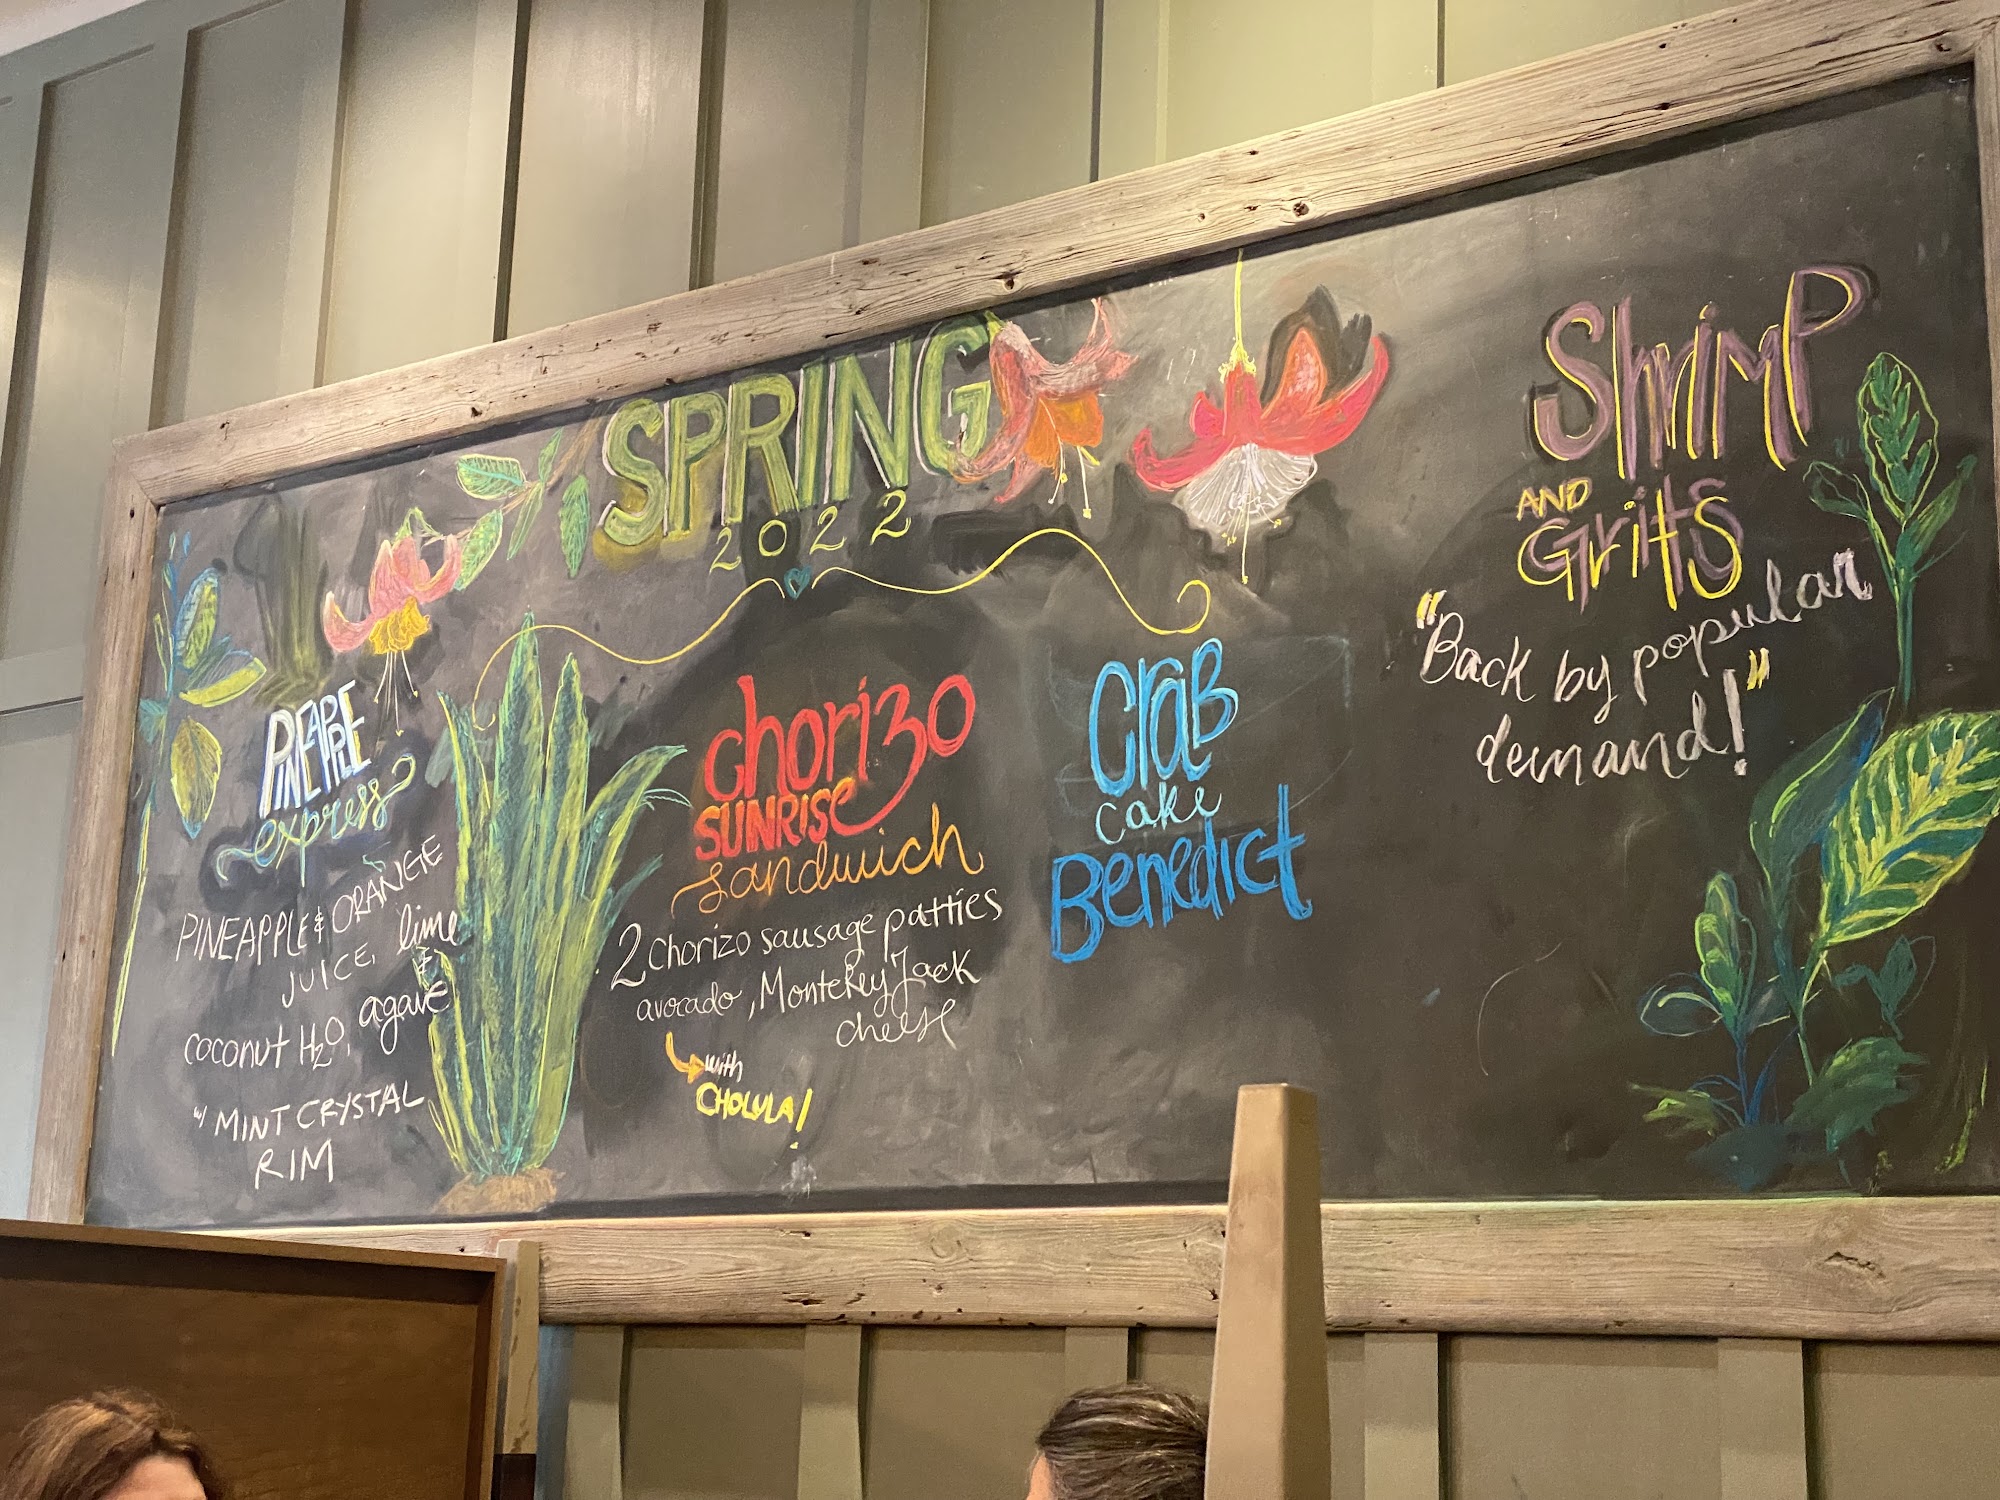 SPRING
2022
PINEAPPLE
express
PINEAPPLE & ORANGE
JUICE, lime
&
coconut H2O, agave
w/ MINT CRYSTAL
RIM
chorizo
SUNRISE
sandwich
2 chorizo sausage patties
avocado, Monterey Jack
cheese
with
CHOLULA!
Crab
cake
Benedict
Shrimp
AND
Grits
"Back by popular
demand!"